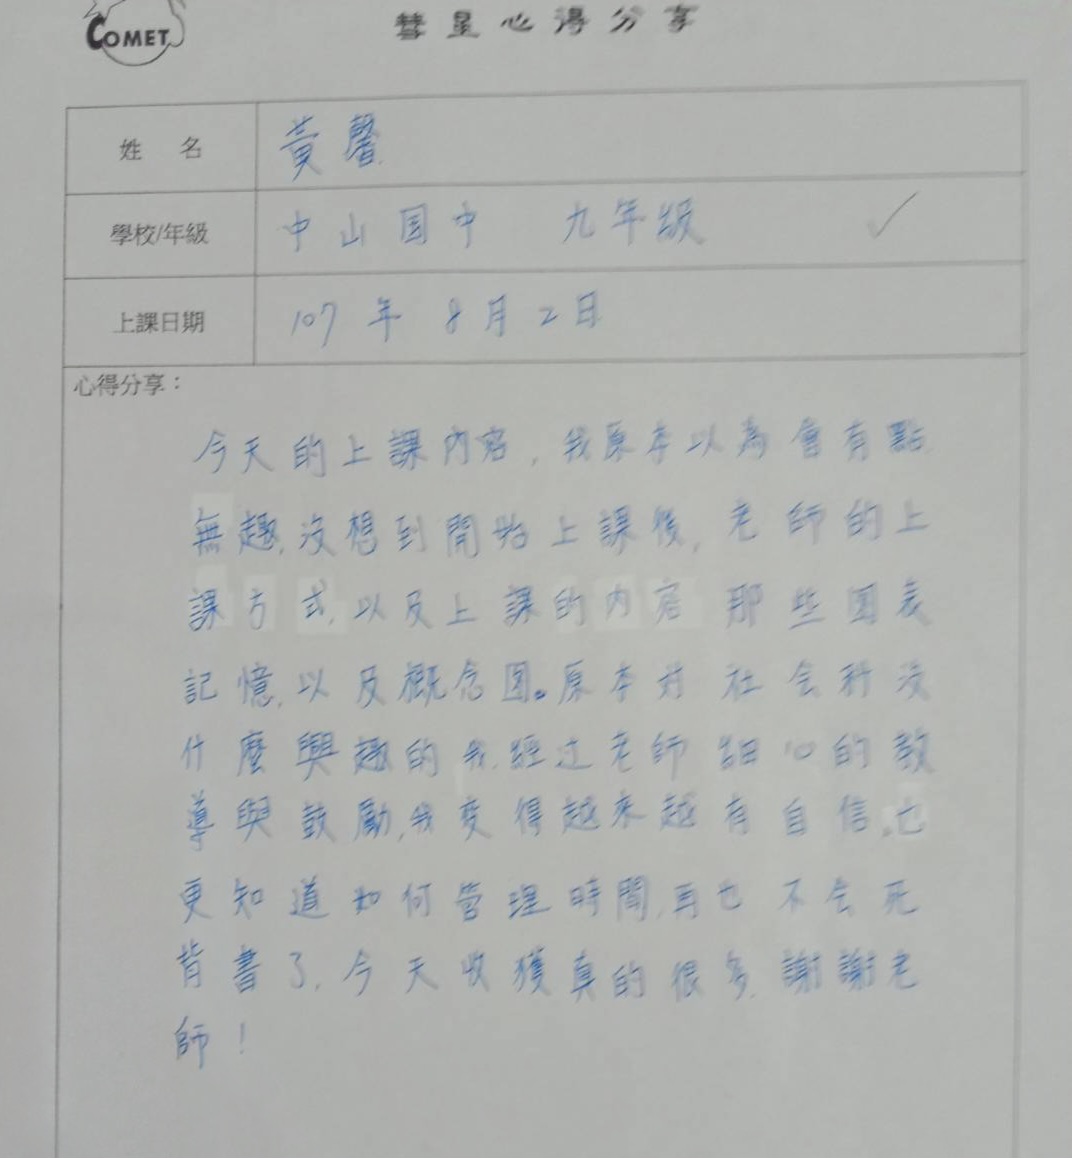 COMET
彗星心得分享
姓 名 黃馨
學校/年級 中山国中 九年級 ✓
上課日期 107年8月2日
心得分享：
今天的上課內容,我原本以為會有點
無趣,沒想到開始上課後,老師的上
課方式,以及上課的內容 那些圖表
記憶,以及概念图。原本对社会科沒
什麼興趣的我,經过老師細心的教
導與鼓勵,我变得越來越有自信,也
更知道如何管理時間,再也不会死
背書了,今天收獲真的很多,謝謝老
師!